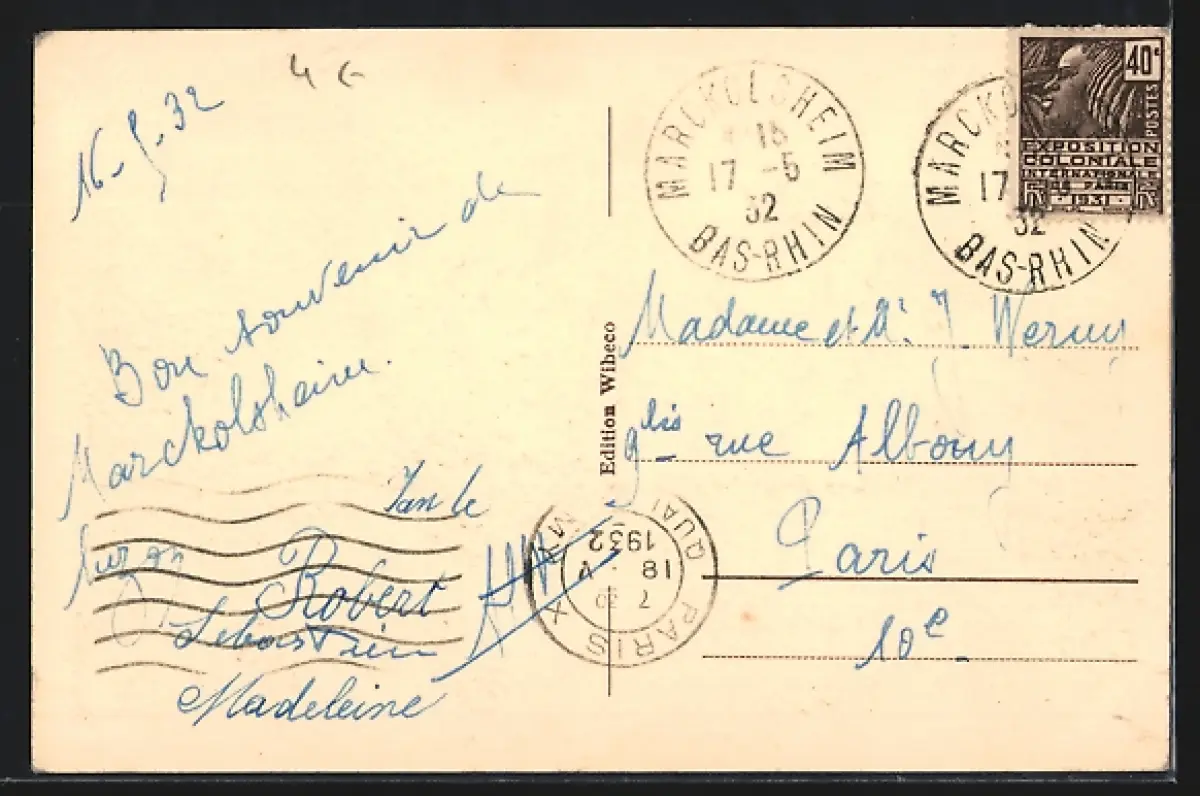 16-5-32
4 €
Bon souvenir de
Marckolsheim.
Robert
Sebastien
Madeleine
Edition Wibeco
MARCKOLSHEIM
18
17 -5
32
BAS-RHIN
MARCKO
17
32
BAS-RHIN
40c
POSTES
EXPOSITION
COLONIALE
INTERNATIONALE
DE PARIS
1931
Madame et Mr J. Werny
9 bis rue Albouy
Paris
10e
PARIS X
QUAI
7 30
18 V
1932